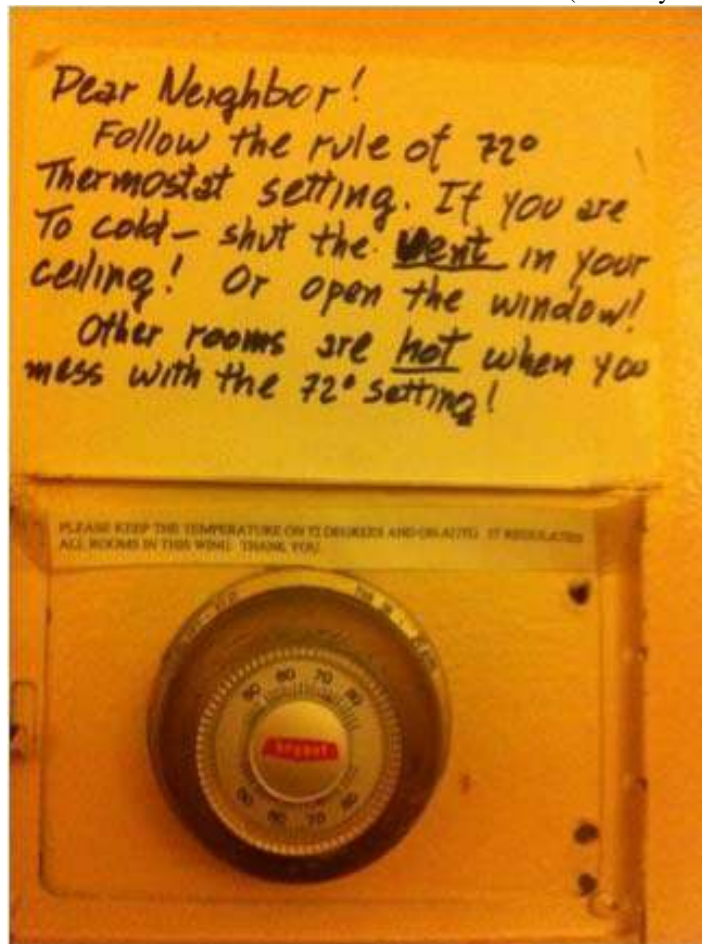 Dear Neighbor!
Follow the rule of 72°
Thermostat setting. If you are
To cold - shut the vent in your
ceiling! Or open the window!
Other rooms are hot when you
mess with the 72° setting!
PLEASE KEEP THE TEMPERATURE ON 72 DEGREES AND ON AUTO. IT REGULATES
ALL ROOMS IN THIS WING. THANK YOU
50 60 70 80
bryant
50 60 70 80